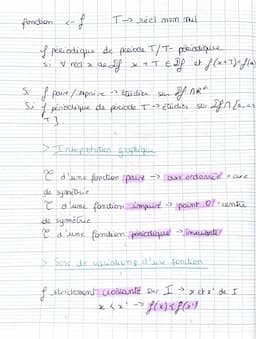 fonction <- f T -> réel non nul
f périodique de période T / T-périodique
si ∀ réel x de Df x + T ∈ Df et f(x+T)=f(x)
Si f paire / impaire -> étudier sur Df ∩ R+
Si f périodique de période T -> étudier sur Df ∩ [a, a+
T]
> Interprétation graphique
C d'une fonction paire -> axe ordonnée = axe
de symétrie
C d'une fonction impaire -> point O = centre
de symétrie
C d'une fonction périodique -> invariante
> Sens de variations d'une fonction
f strictement croissante sur I -> x et x' de I
x < x' -> f(x) < f(x')